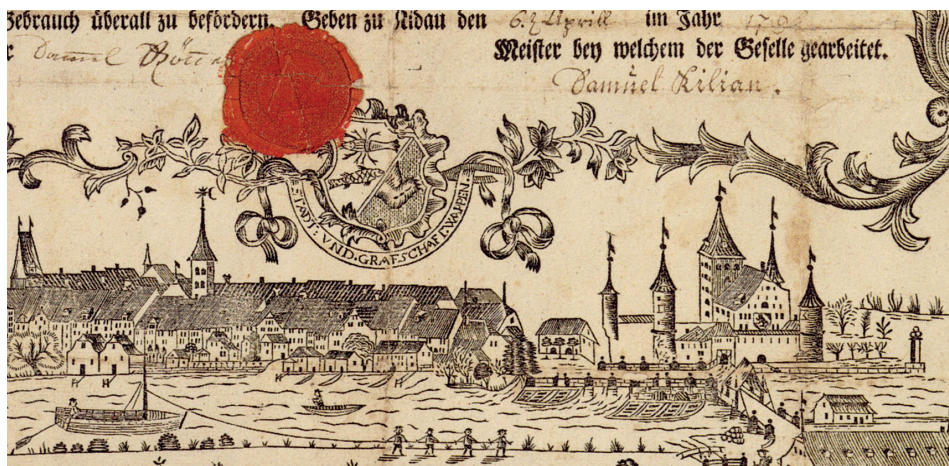 Gebrauch überall zu befördern. Geben zu Nidau den 6.ᵗ Aprill im Jahr
Samuel
Meister bey welchem der Geselle gearbeitet.
Samuel Kilian.
STADT: VND. GRAFSCHAFT WAPEN.